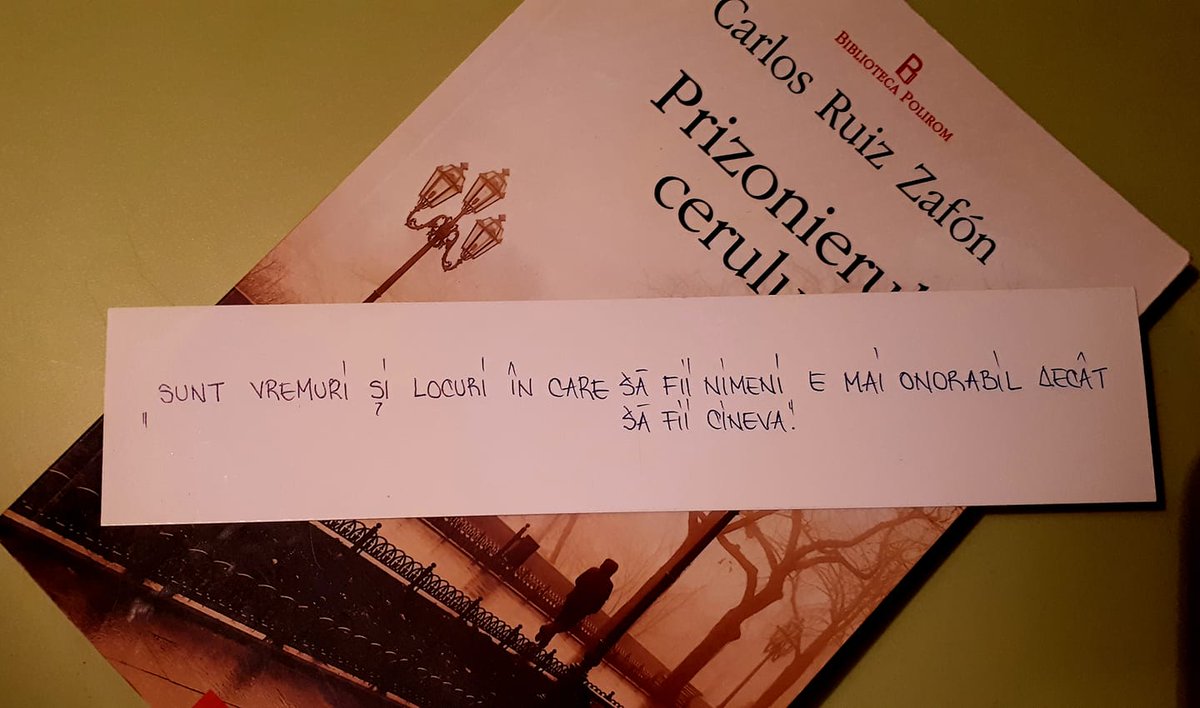 Carlos Ruiz Zafón
B
BIBLIOTECA POLIROM
Prizonierul
cerulu
„SUNT VREMURI ȘI LOCURI ÎN CARE SĂ FII NIMENI E MAI ONORABIL DECÂT
SĂ FII CINEVA."